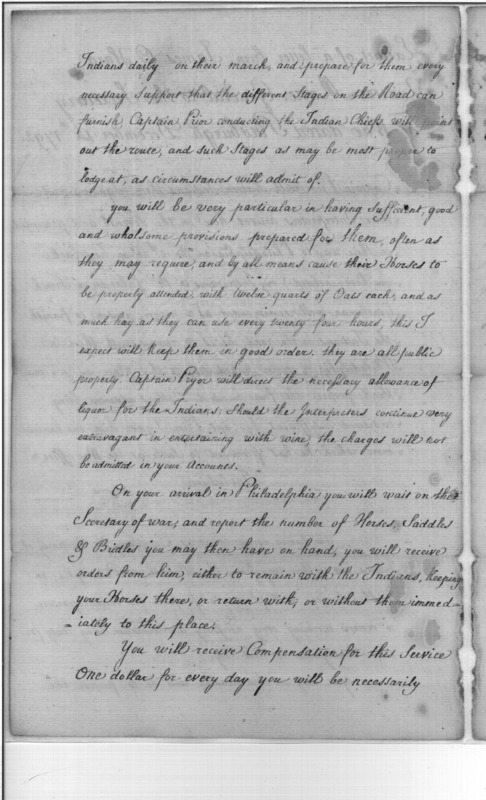 Indians daily on their march, and prepare for them every
necessary support that the different stages on the Road can
furnish Captain Prior conducting the Indian Chiefs will point
out the route, and such Stages as may be most proper to
lodge at, as circumstances will admit of.
you will be very particular in having sufficient, good
and wholsome provisions prepared for them, often as
they may require, and by all means cause their Horses to
be properly attended with twelve quarts of Oats each, and as
much hay as they can use every twenty four hours, this I
expect will keep them in good order. they are all public
property. Captain Pryor will direct the necessary allowance of
liquor for the Indians: Should the Interpreters continue very
extravagant in entertaining with wine, the charges will not
be admitted in your Accounts.
On your arrival in Philadelphia you will wait on the
Secretary of war, and report the number of Horses, Saddles
& Bridles you may then have on hand, you will receive
orders from him, either to remain with the Indians, keeping
your Horses there, or return with, or without them immed-
-iately to this place.
You will receive Compensation for this Service
One dollar for every day you will be necessarily